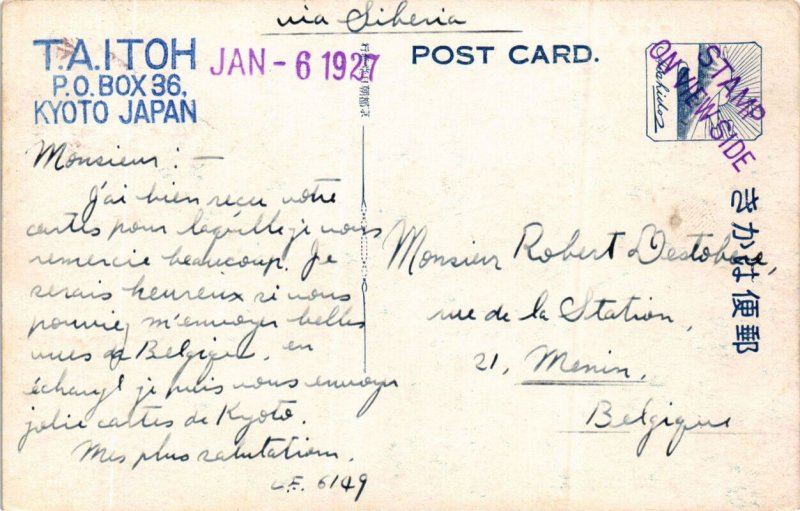 via Siberia
T.A.ITOH
P.O. BOX 36,
KYOTO JAPAN
JAN - 6 1927
POST CARD.
STAMP
ON VIEW SIDE
きかは便郵
Monsieur : —
J'ai bien reçu votre
cartes pour laquille je vous
remercie beaucoup. Je
serais heureux si vous
pouviez m'envoyer belles
vues de Belgique, en
échange je puis vous envoyer
jolie cartes de Kyoto.
Mes plus salutation.
6149
Monsieur Robert
rue de la Station,
21, Menin,
Belgique